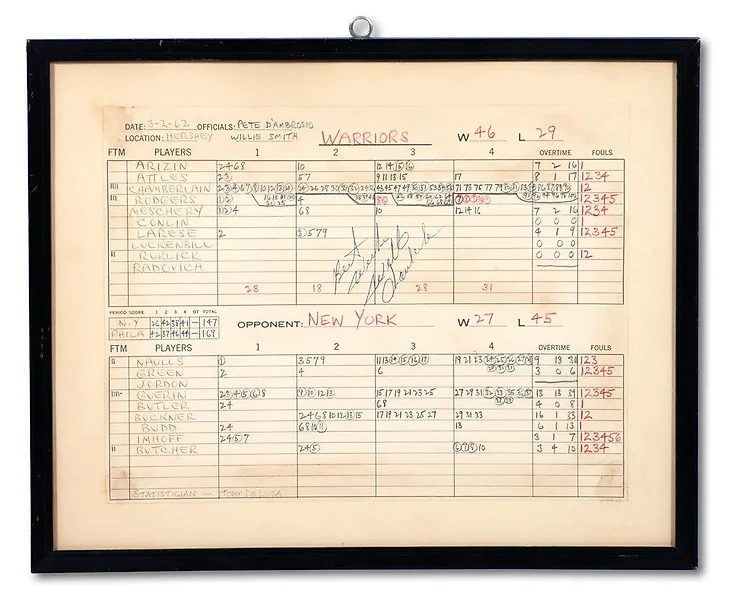 DATE: 3-2-62 OFFICIALS: PETE D'AMBROSIO
LOCATION: HERSHEY WILLIE SMITH WARRIORS W 46 L 29
FTM PLAYERS 1 2 3 4 OVERTIME FOULS
ARIZIN 2 4 6 8 10 12 14 15 16 7 2 16 1
ATTLES 2 3 5 7 9 11 13 15 17 8 1 17 1 2 3 4
CHAMBERLAIN 1 2
RODGERS 1 2 4 1 2 3 4 5
MESCHERY 1 2 4 6 8 10 12 14 16 7 2 16 1 2 3 4
CONLIN 0 0 0 1
LARESE 2 3 5 7 9 4 1 9 1 2 3 4 5
LUCKENBILL 0 0 0
RUKLICK 0 0 0 1 2
RADOVICH
28 18 28 31
Best Wishes Wilt Chamberlain
PERIOD SCORE 1 2 3 4 OT TOTAL
N.Y 26 42 38 41 - 147
PHILA 42 37 46 44 - 169
OPPONENT: NEW YORK W 27 L 45
FTM PLAYERS 1 2 3 4 OVERTIME FOULS
NAULLS 1 3 5 7 9 11 13 14 15 16 17 19 21 23 24 25 26 27 9 13 31 1 2 3
GREEN 2 4 6 3 0 6 1 2 3 4 5
JORDON
GUERIN 2 3 4 5 6 8 9 10 12 13 15 17 19 21 23 25 27 29 31 13 13 39 1 2 3 4 5
BUTLER 2 4 6 8 4 0 8 1
BUCKNER 2 4 6 8 10 12 13 15 17 19 21 23 25 27 29 31 33 16 1 33 1 2
BUDD 2 4 6 8 10 11 13 6 1 13 1
IMHOFF 2 4 5 7 3 1 7 1 2 3 4 5 6
BUTCHER 2 4 5 6 7 8 10 3 4 10 1 2 3 4
STATISTICIAN — TOBY DELUCA